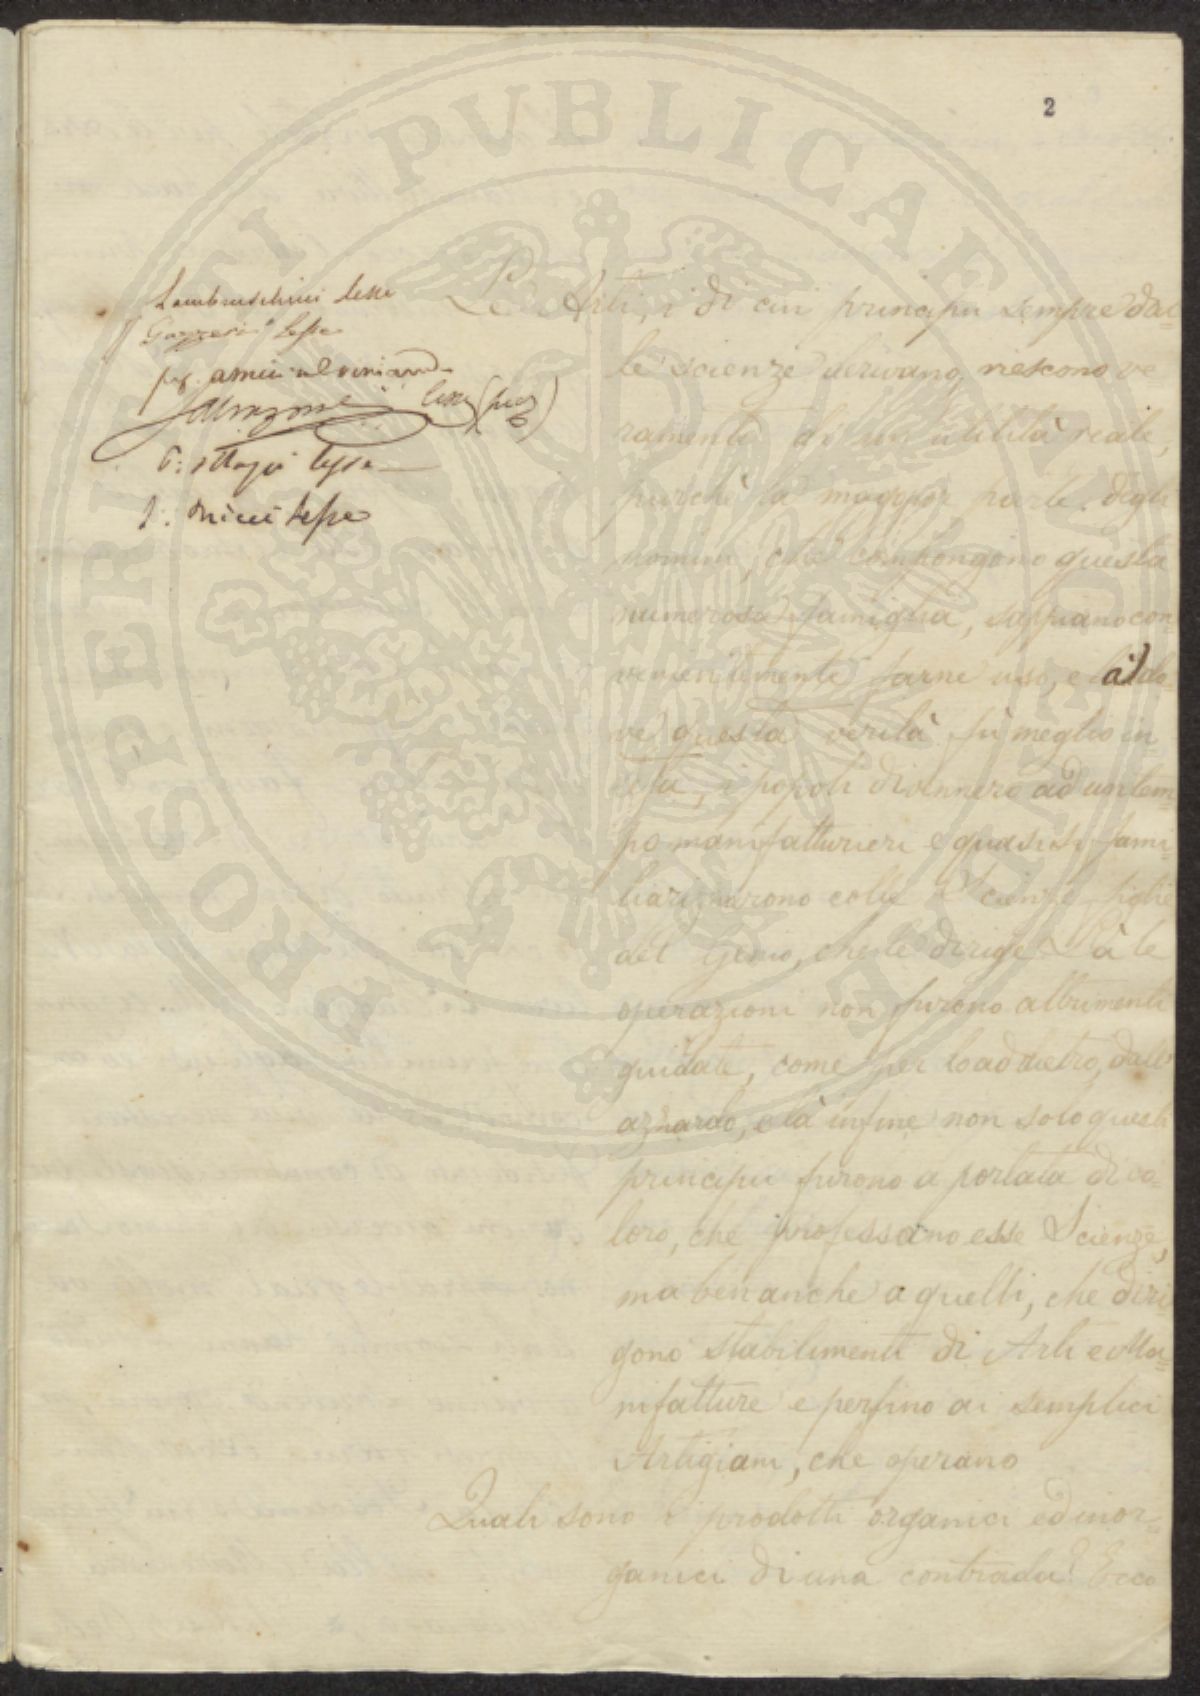 2
Lambruschini lesse
Gazzeri lesse
lesse
lesse
Ricci lesse
Le Arti, i di cui principii sempre dal=
le scienze derivano, riescono ve=
ramente di un'utilità reale,
purchè la maggior parte degli
uomini, che compongono questa
numerosa famiglia, sappiano con=
venientemente farne uso, e là do=
ve questa verità fù meglio in=
tesa, i popoli divennero ad un tem=
po manifatturieri e quasi si fami=
liarizzarono colle Scienze figlie
del Genio, che le dirige. Là le
operazioni non furono altrimenti
guidate, come per lo addietro, dall'
azzardo, e là infine non solo questi
principii furono a portata di co=
loro, che professano esse Scienze,
ma benanche a quelli, che diri=
gono stabilimenti di Arti e Ma=
nifatture e perfino ai semplici
Artigiani, che operano
Quali sono i prodotti organici ed inor=
ganici di una contrada? Ecco
PROSPERITATI PUBLICAE AUGENDAE